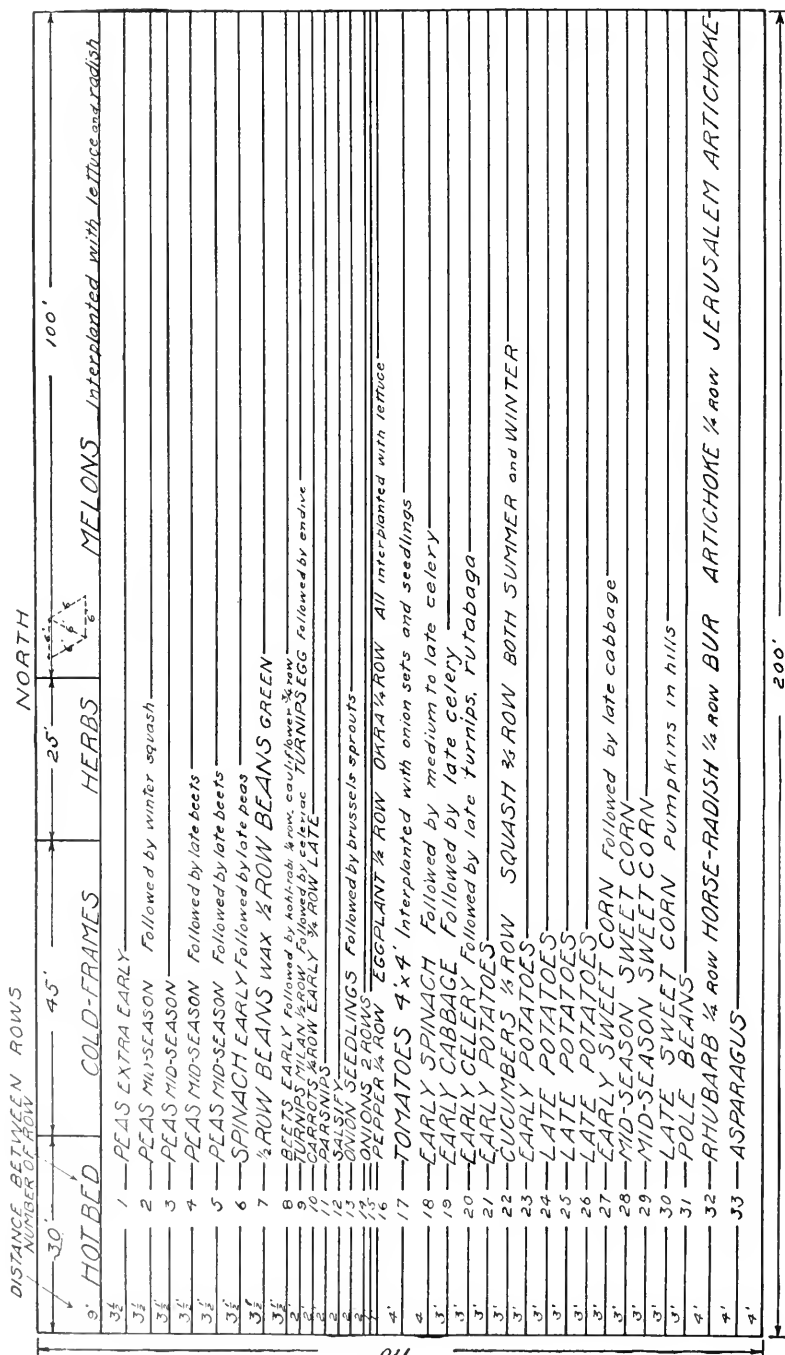 NORTH
DISTANCE BETWEEN ROWS
NUMBER OF ROW
30'
45'
25'
100'
9'
HOT BED
COLD-FRAMES
HERBS
MELONS Interplanted with lettuce and radish
6'
6'
6'
6'
3½
1 PEAS EXTRA EARLY
3½
2 PEAS MID-SEASON Followed by winter squash
3½'
3 PEAS MID-SEASON
3½'
4 PEAS MID-SEASON Followed by late beets
3½'
5 PEAS MID-SEASON Followed by late beets
3½'
6 SPINACH EARLY Followed by late peas
3½'
7 ½ ROW BEANS WAX ½ ROW BEANS GREEN
3½'
8 BEETS EARLY Followed by kohl-rabi ¼ row, cauliflower ¾ row
2'
9 TURNIPS MILAN ½ ROW Followed by celeriac TURNIPS EGG Followed by endive
2'
10 CARROTS ¼ ROW EARLY ¾ ROW LATE
2'
11 PARSNIPS
2'
12 SALSIFY
2
13 ONION SEEDLINGS Followed by brussels sprouts
2
14
15 ONIONS 2 ROWS
1'
16 PEPPER ¼ ROW EGGPLANT ½ ROW OKRA ¼ ROW All interplanted with lettuce
4'
17 TOMATOES 4'x4' Interplanted with onion sets and seedlings
4
18 EARLY SPINACH Followed by medium to late celery
3'
19 EARLY CABBAGE Followed by late celery
3'
20 EARLY CELERY Followed by late turnips, rutabaga
3'
21 EARLY POTATOES
3'
22 CUCUMBERS ¼ ROW SQUASH ¾ ROW BOTH SUMMER and WINTER
3'
23 EARLY POTATOES
3'
24 LATE POTATOES
3'
25 LATE POTATOES
3'
26 LATE POTATOES
3'
27 EARLY SWEET CORN Followed by late cabbage
3'
28 MID-SEASON SWEET CORN
3'
29 MID-SEASON SWEET CORN
3'
30 LATE SWEET CORN Pumpkins in hills
3'
31 POLE BEANS
4'
32 RHUBARB ¼ ROW HORSE-RADISH ¼ ROW BUR ARTICHOKE ¼ ROW JERUSALEM ARTICHOKE
4'
33 ASPARAGUS
4'
200'